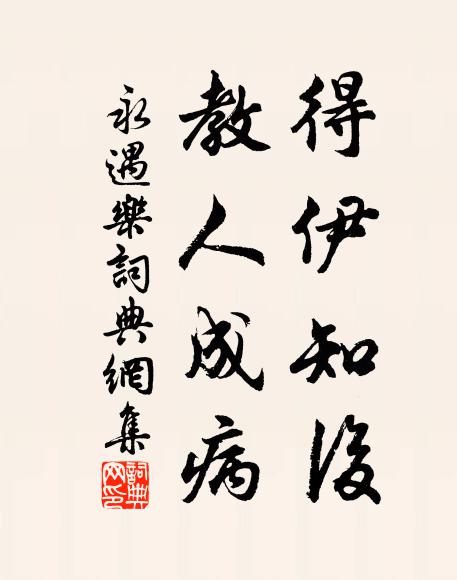 得伊知後
教人成病
永遇樂詞典網集
詞典網印